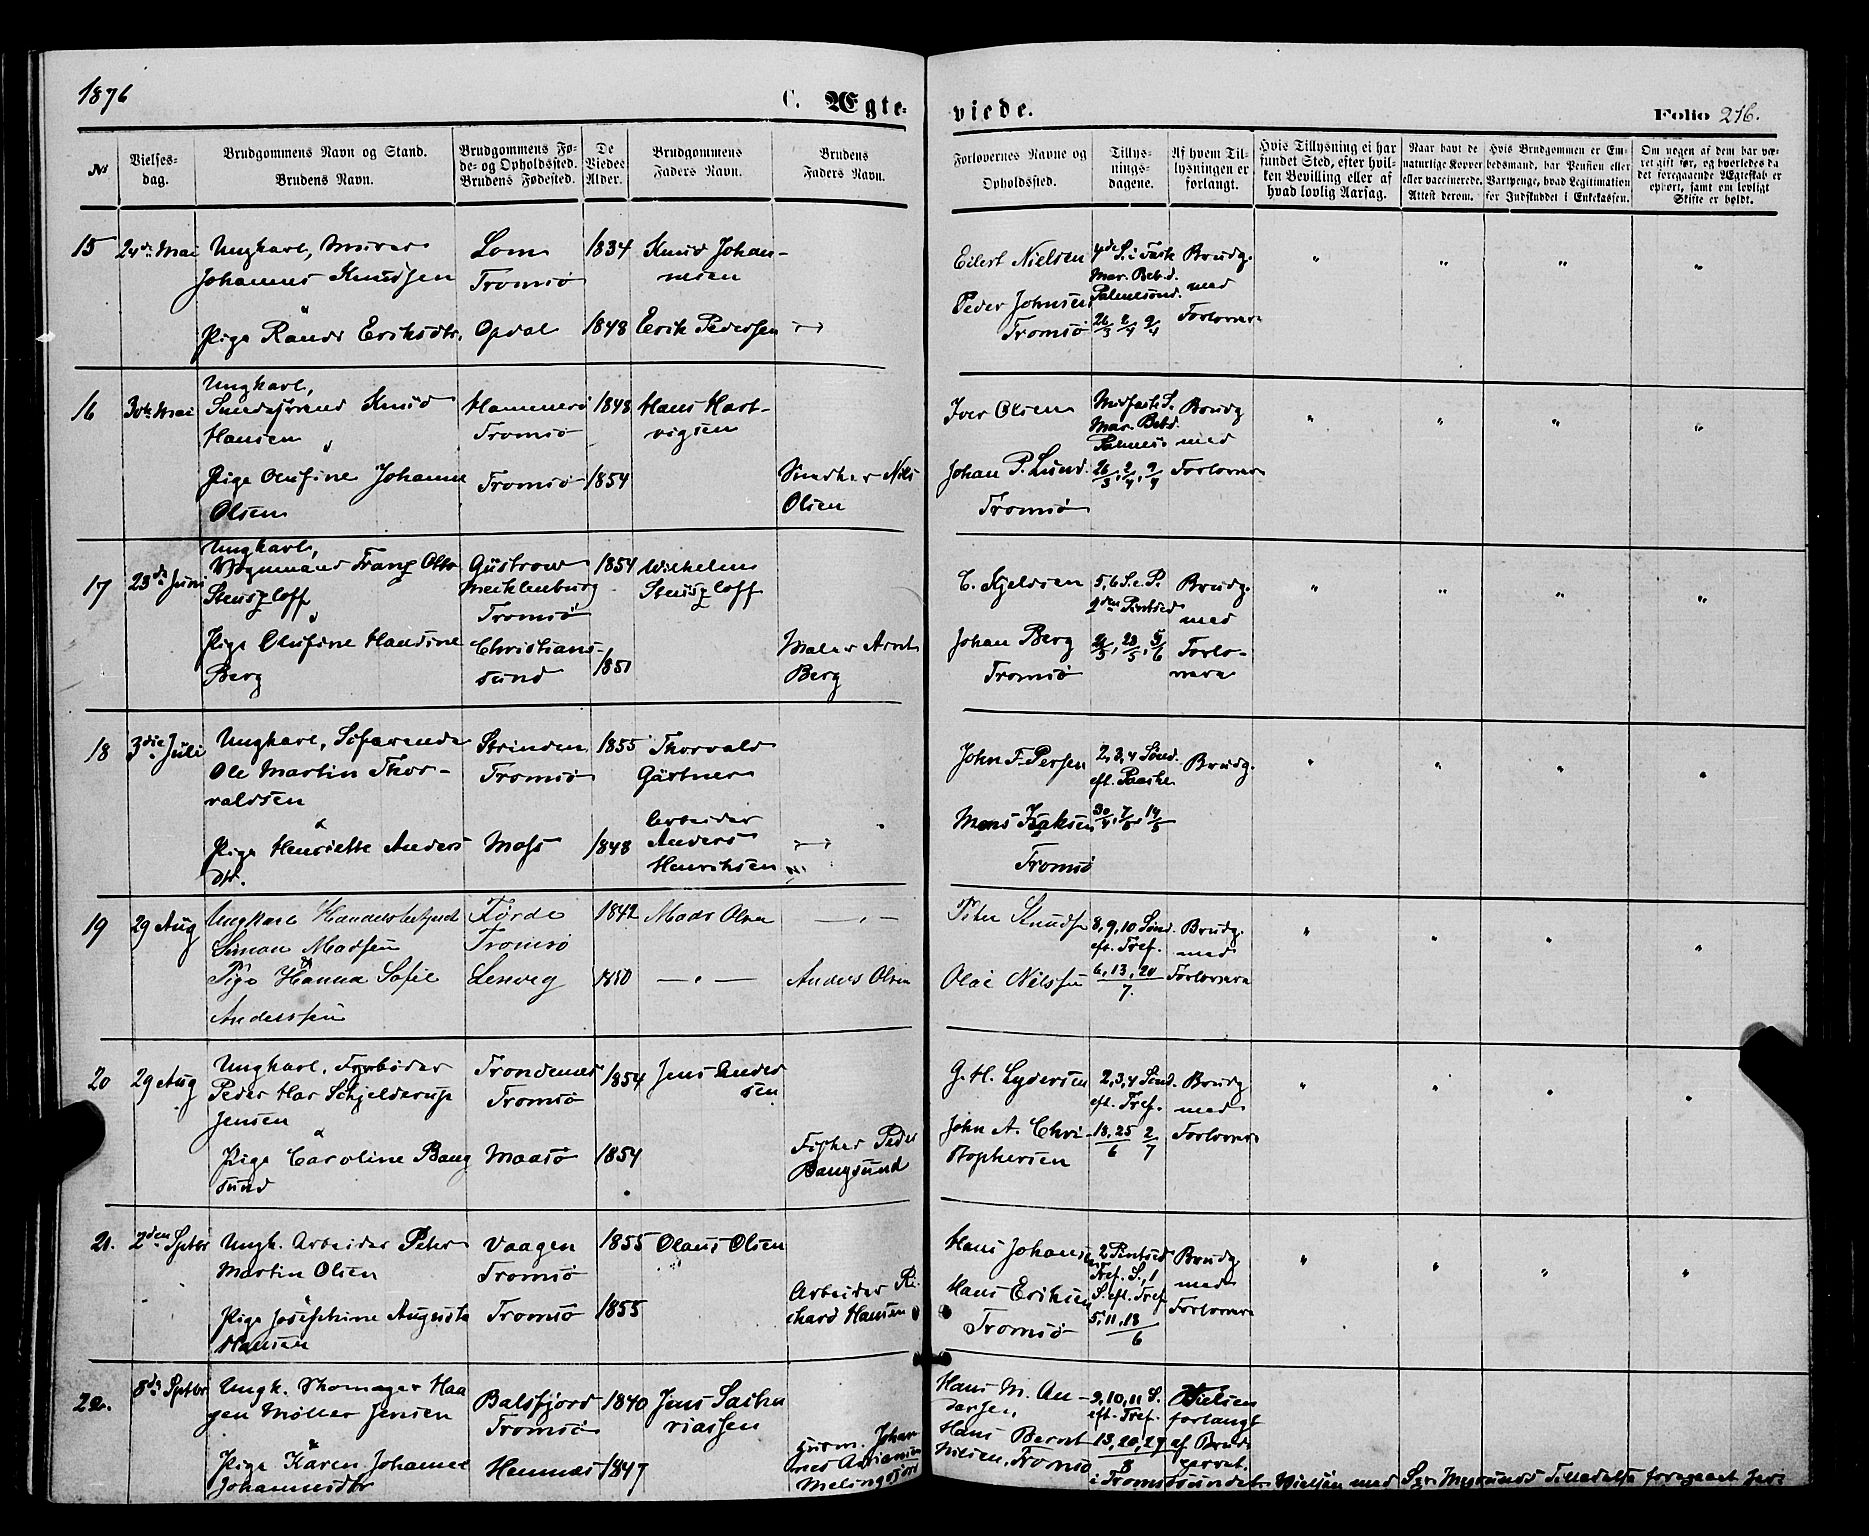 1876
C. Ægte-
viede.
Folio 216.
№
Vielses-
dag.
Brudgommens Navn og Stand.
Brudens Navn.
Brudgommens Fø-
de- og Opholdssted.
Brudens Fødested.
De
Viedes
Alder.
Brudgommens
Faders Navn.
Brudens
Faders Navn.
Forlovernes Navne og
Opholdssted.
Tillys-
nings-
dagene.
Af hvem Til-
lysningen er
forlangt.
Hvis Tillysning ei har
fundet Sted, efter hvil-
ken Bevilling eller af
hvad lovlig Aarsag.
Naar havt de
naturlige Kopper
eller vaccinerede.
Attest derom.
Hvis Brudgommen er Em-
bedsmand, har Pension eller
Vartpenge, hvad Legitimation
for Indskuddet i Enkekassen.
Om nogen af dem har væ-
ret gift før, og hvorledes da
det foregaaende Ægteskab er
ophørt, samt om lovligt
Skifte er holdt.
15 24de Mai Ungkarl, Murer Lom 1834 Knud Johan-
Johannes Knudsen Tromsö nesen
&
Pige Randi Eriksdtr. Opdal 1848 Erik Pedersen
Eilert Nielsen 4de S. i Faste Brudg.
Mar. Beb.d. med
Peder Johnsen Palmesönd. Forlovere
Tromsö 26/3 2/4 9/4
16 30te Mai Ungkarl,
Knud Hammerö 1848 Hans Hart-
Hansen Tromsö vigsen
&
Pige Olufine Johanne Tromsö 1854 Snedker Nils
Olsen Olsen
Iver Olsen Midfaste S. Brudg
Mar. Beb.d.
Palmes. med
Johan P. Lund 26/3, 2/4, 9/4 Forlovere
Tromsö
17 23de Juni Ungkarl,
Vognmand Franz Otto Güstrow 1854 Wilhelm
Stenszloff Mecklenburg Stenszloff
& Tromsö
Pige Olufine Hansine Christians-
Berg sund 1851 Maler Arnt
Berg
C. Kjeldsen 5, 6 S. e. P. Brudg.
2den Pintsed. med
Johan Berg 21/5, 25/5, 5/6 Forlo-
Tromsö vere
18 3die Juli Ungkarl, Söfarende Strinden 1855 Thorvald
Ole Martin Thor- Tromsö Gärtner
valdsen
& Arbeider
Pige Henriette Anders Moss 1848 Anders
dtr. Henriksen
John F. Persen 2, 3, 4 Sönd. Brudg.
eft. Paaske
Mons Isaksen 30/4, 7/5, 14/5
Tromsö
19 29 Aug Ungkarl Handelsbetjent Förde 1842 Mads Olsen
Simon Madsen Tromsö
&
Pige Hanna Sofie Lenvig 1850 Anders Olsen
Anderssen
Peter Knudsen 8, 9, 10 Sönd. Brudg.
eft. Tref. med
Olai Nilssen 6, 13, 20/7. Forlovere
20 29 Aug Ungkarl, Fyrböder Trondenes 1854 Jens Ander
Peder Har Schjelderup Tromsö sen
Jensen
&
Pige Caroline Bang Maasö 1854 Fisker Peder
sund Bangsund
G. H. Lydersen 2, 3, 4 Sönd. Brudg
eft. Tref. med
John A. Chri- 18, 25/6 2/7 Forlovere
stophersen
21. 2den Septbr Ungk. Arbeider Peter Vaagen 1855 Olaus Olsen
Martin Olsen Tromsö
&
Pige Josephine Augusta Tromsö 1855 Arbeider Ri-
Hansen chard Hansen
Hans Johansen 2 Pintsed Brudg
Tref. S., 1 med
Hans Eriksen S. eft. Tref Forlovere
Tromsö 5, 11, 18/6
22. 8de Septbr Ungk. Skomager Haa Balsfjord 1840 Jens Sacha
gen Möller Jensen Tromsö riassen
&
Pige Karen Johanne Hemnæs 1847 Johan
Johannesdtr nes
Hans M. An- 9, 10, 11 S. Vielsen
dersen, eft. Tref. forlangt
Hans Bernt 13, 20, 27/8 af Brude
Nielsen, Tromsö parret.
i Tromsösundet. Vielsen med Tilladelse foregaaet